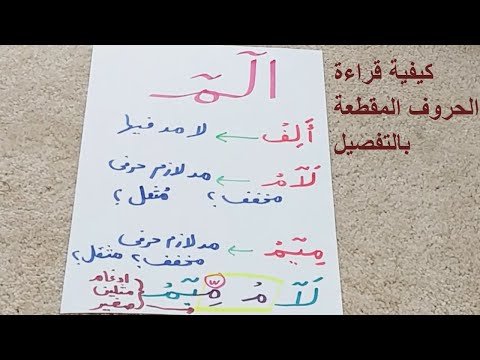 كيفية قراءة
الحروف المقطعة
بالتفصيل
الٓمٓ
أَلِفْ ← لا مد فيها
لَآمْ ← مد لازم حرفي
مخفف؟ مُثقل؟
مِيٓمْ ← مد لازم حرفي
مخفف؟ مثقل؟
لَآ مْ مِّيٓمْ
إدغام
مثلين
صغير